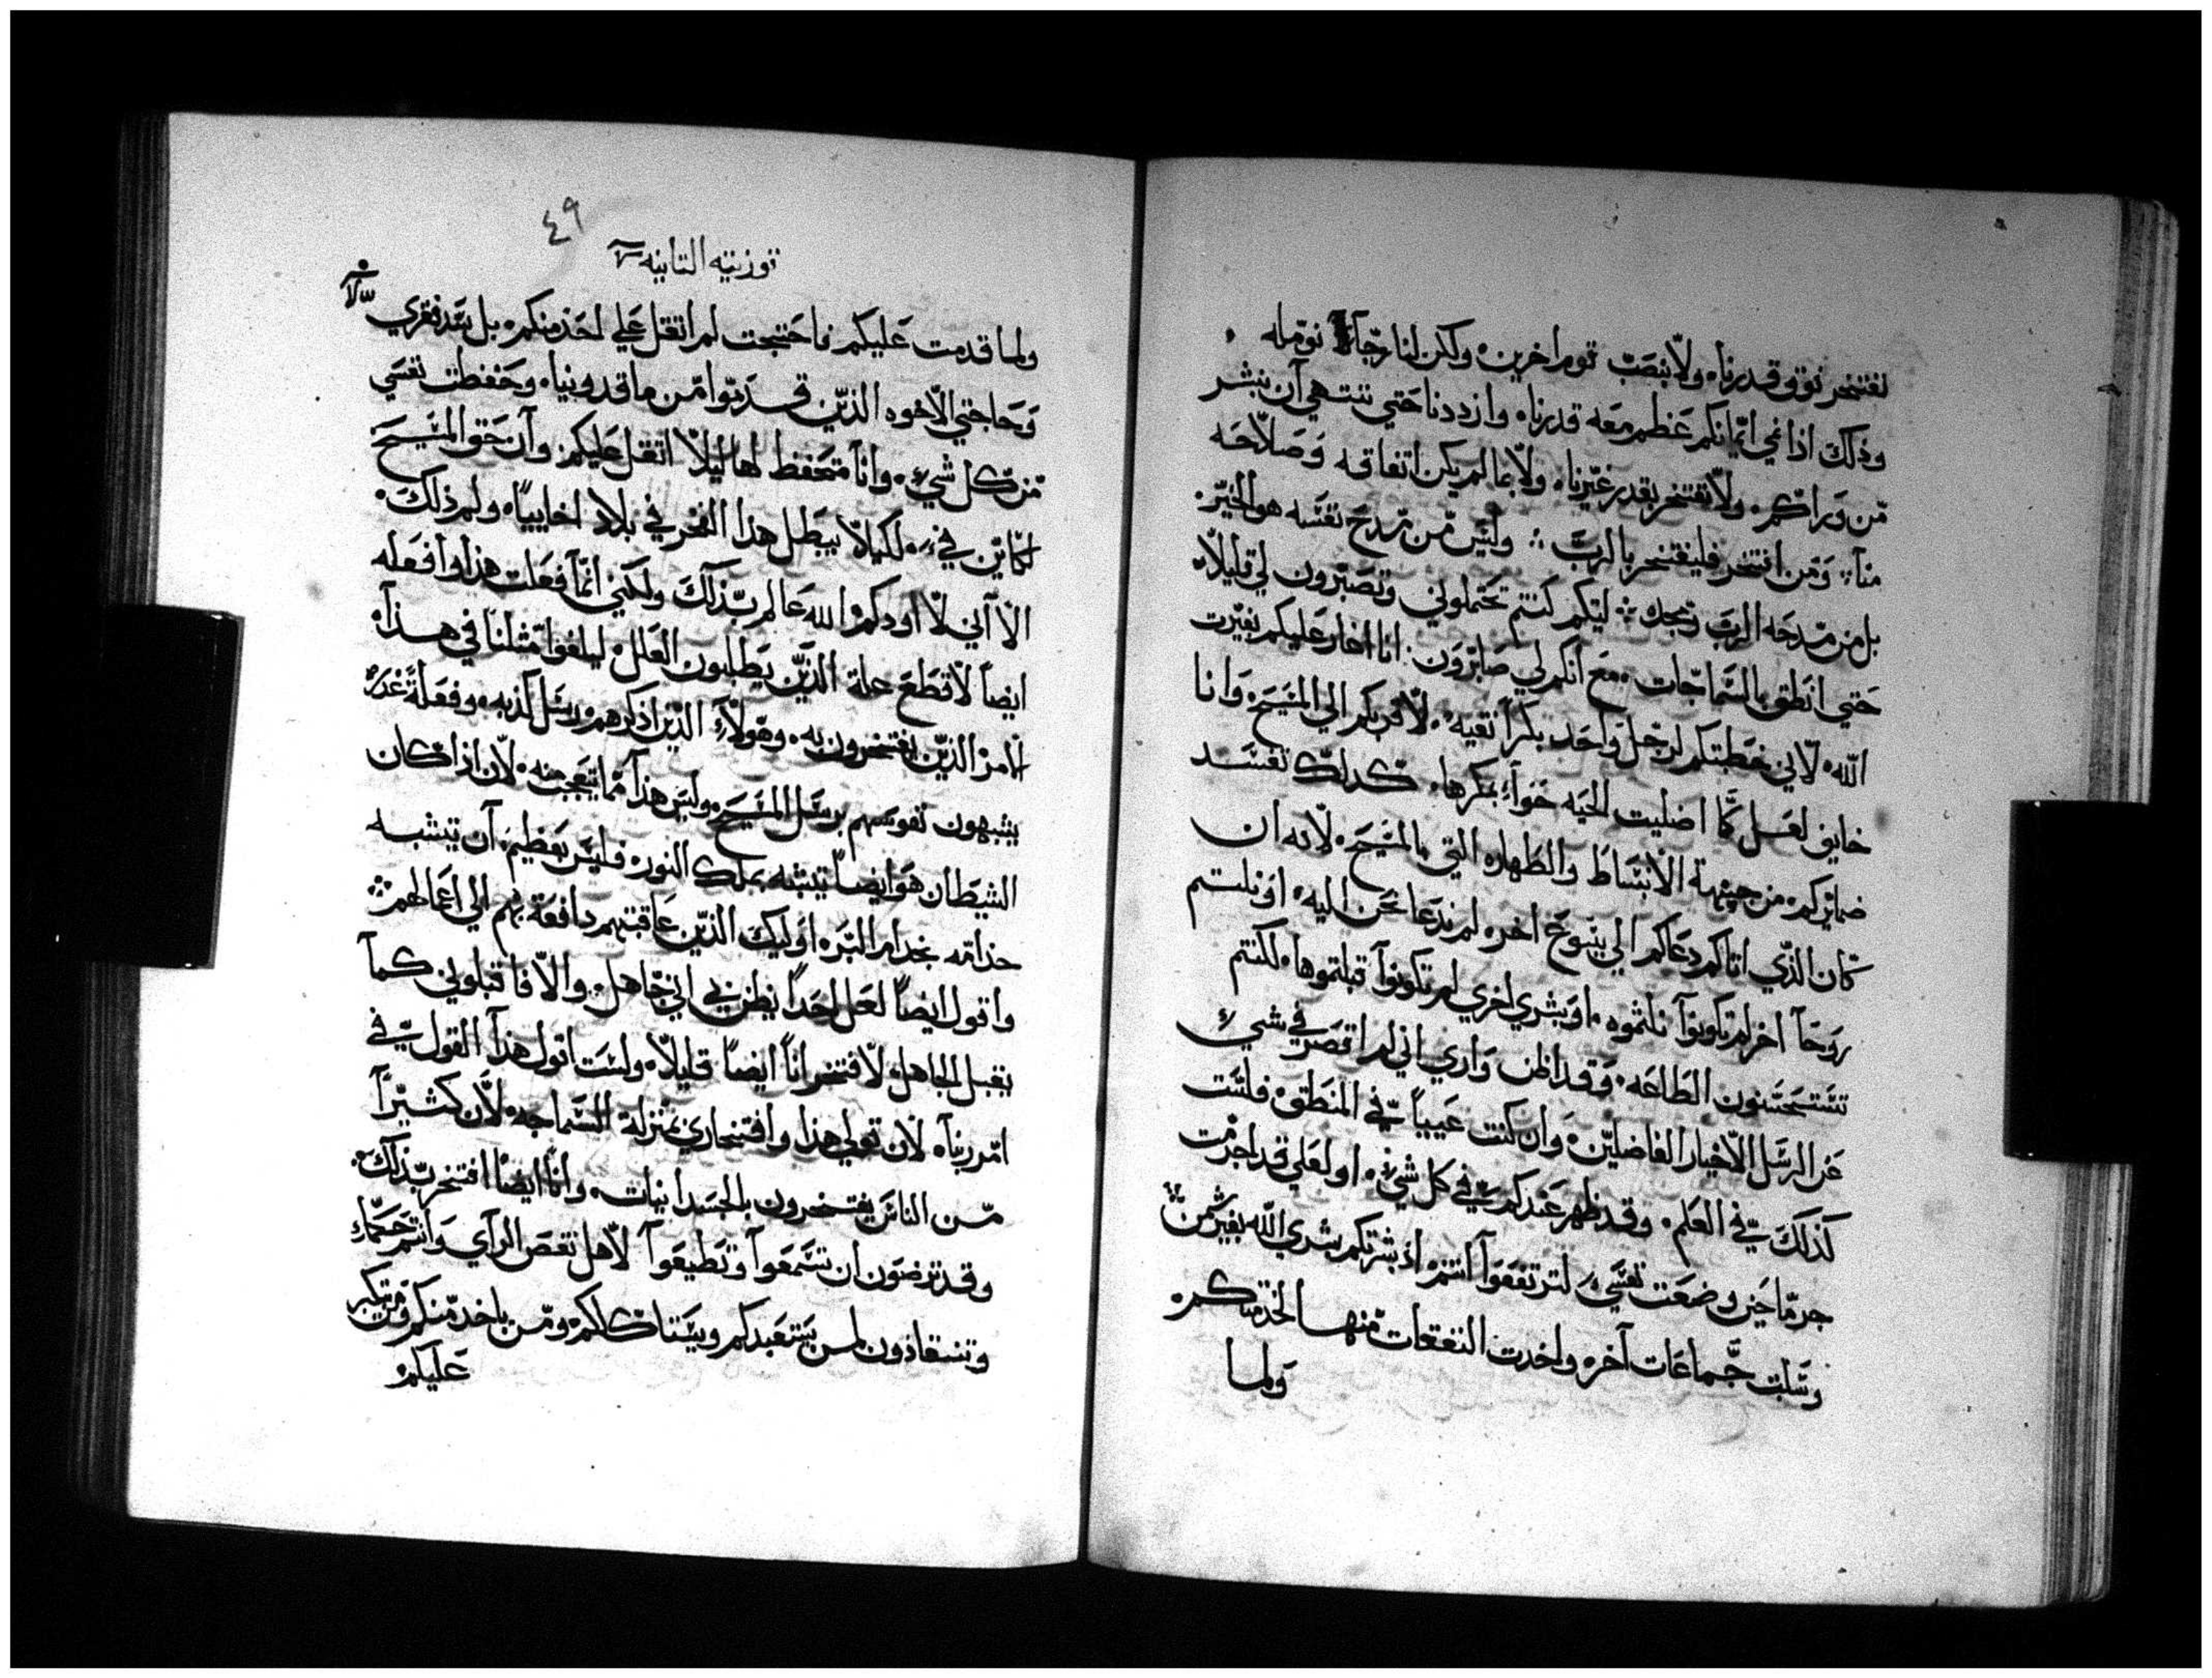 نفتخر فوق قدرنا، ولا بنصب قوم اخرين، ولكن لنا رجآء نومله
وذلك اذا نمي ايمانكم عظم معه قدرنا، وازددنا حتي ننتهي آن نبشر
من وراكم، ولا نفتخر بقدر غيرنا، ولا بما لم يكن اتفاقه وصلاحه
منآ، ومن افتخر فليفتخر بالرب، وليس من مدح نفسه هو الخير.
بل من مدحه الرب ومجده، ليتكم كنتم تحتملوني وتصبرون لي قليلاً،
حتي انطق بالسماجات، مع انكم لي صابرون، انا اغار عليكم بغيرت
الله، لاني خطبتكم لرجل واحد بكراً نقيه، لاقربكم الي المسيح، وانا
خايف لعل كما اضليت الحيه حوآء بمكرها، كدلك تفسد
ضمايركم، من جهة الانبساط والطهاره التي بالمسيح، لانه ان
كان الذي اتاكم دعاكم الي يسوع اخر، لم ندعا نحن اليه، او نلتم
روحاً اخر لم تكونوآ نلتموه، او بشري اخري لم تكونوآ قبلتموها، لكنتم
تستحسنون الطاعه، وقد اظن واري اني لم اقصر في شي
عن الرسل الاخيار الفاضلين، وان كنت عيياً في المنطق، فلست
كذلك في العلم، وقد ظهر عندكم في كل شي، او لعلي قد اجرمت
جرماً حين وضعت نفسي، لترتفعوآ انتم، اذ بشرتكم بشري الله بغير ثمن
وسلبت جماعات آخر، واخدت النفقات منها لخدمتكم،
ولما
٤٩
قورنتيه التانيه
ولما قدمت عليكم فاحتجت لم اتقل علي احد منكم، بل سد فقري
وحاجتي الاخوه الذين قدموا من ماقدونيا، وحفظت نفسي
من كل شي، وانا متحفظ لها ليلا اتقل عليكم، وآن حق المسيح
لكاين في، لكيلا يبطل هدا الفخر في بلاد اخاييا، ولم ذلك،
الا آني لا اودكم، الله عالم بذلك، ولكني انما فعلت هذا وافعله
ايضاً لاقطع علة الذين يطلبون العلل، ليلفوا مثلنا في هذآ،
الامر الذين يفتخرون به، وهولآء الذين اذكرهم رسل كذبه، وفعلة غدر،
يشبهون نفوسهم برسل المسيح، وليس هذآ مما يتعجب منه، لان اذا كان
الشيطان هو ايضاً يتشبه بملك النور، فليس بعظيم، آن يتشبه
خدامه بخدام البر، اوليك الذين عاقبتهم دافعة بهم الي اعمالهم،
واقول ايضاً لعل احداً يظن بي اني جاهل، والا فاقبلوني كمآ
يقبل الجاهل، لافتخر انا ايضاً قليلاً، ولست اقول هذآ القول في
امر ربنآ، لان قولي هذا وافتخاري بمنزلة السماجه، لان كثيرآً
من الناس يفتخرون بالجسدانيات، وانا ايضاً افتخر بذلك،
وقد ترضون ان تسمعوآ وتطيعوآ لاهل نقص الرآي، وانتم حكماء
وتنقادون لمن يستعبدكم ويستاكلكم، ومن ياخد منكم ومن يتكبر
عليكم